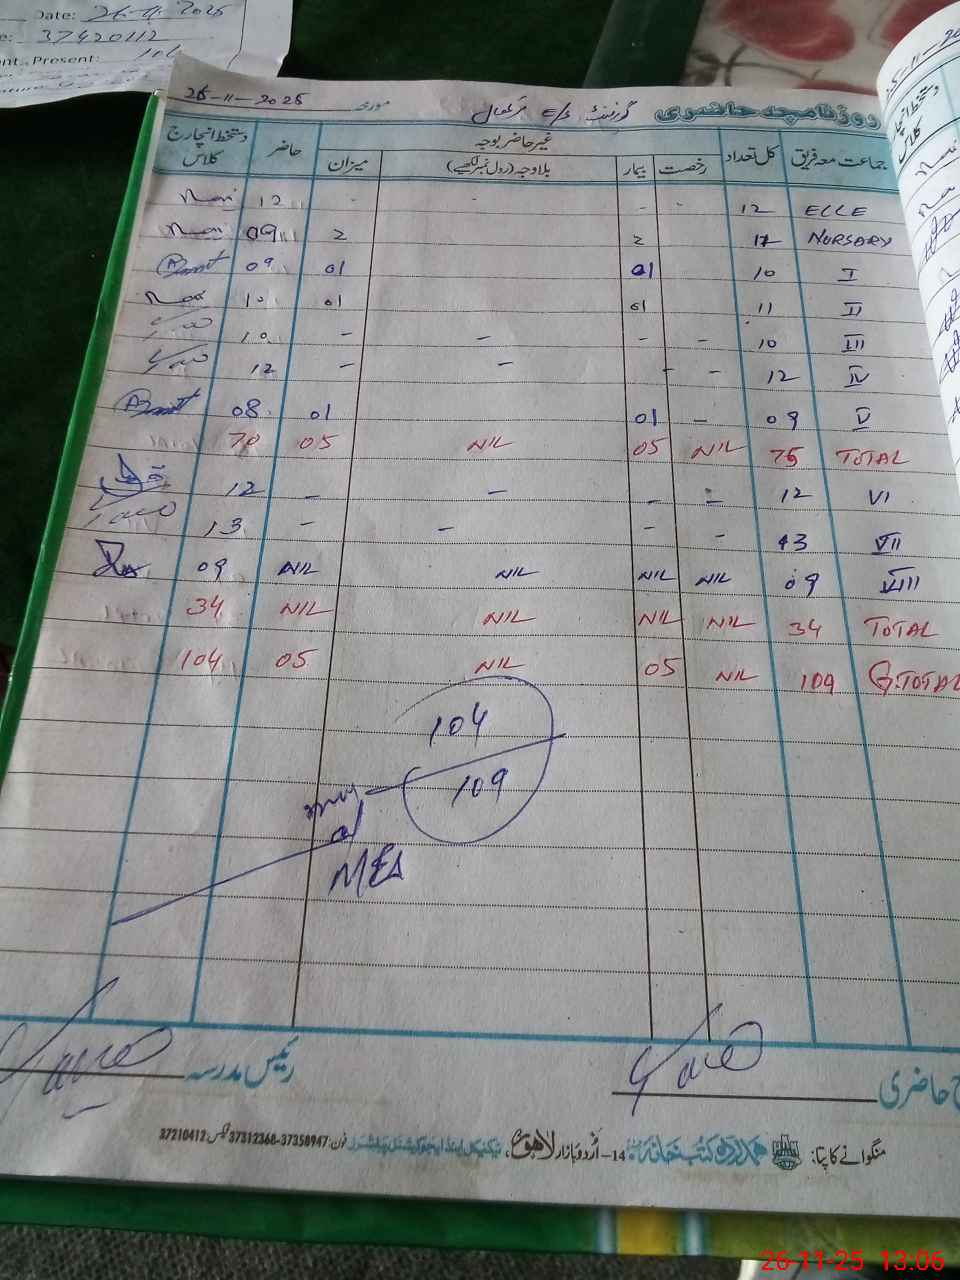 Date: 26-11-2025
37420112
Present: 104
26-11-2025 مورخہ گورنمنٹ روزنامچہ حاضری
جماعت معہ فریق کل تعداد غیر حاضر بوجہ حاضر دستخط انچارج کلاس
رخصت بیمار بلاوجہ (رول نمبر لکھیے) میزان
12 - - - - 12 ECCE
09 2 2 11 NURSARY
09 01 01 10 I
10 01 01 11 II
10 - - - - 10 III
12 - - - - 12 IV
08 01 01 - 09 V
70 05 NIL 05 NIL 75 TOTAL
12 - - - - 12 VI
13 - - - - 13 VII
09 NIL NIL NIL NIL 09 VIII
34 NIL NIL NIL NIL 34 TOTAL
104 05 NIL 05 NIL 109 G.TOTAL
104
109
MEA
رئیس مدرسہ
حاضری
منگوانے کا پتا: ہمدرد کتب خانہ 14-اُردو بازار لاہور، ٹیکنیکل اینڈ ایجوکیشنل پبلشرز فون: 37358947-37312368 فیکس: 37210412
26-11-25 13:06